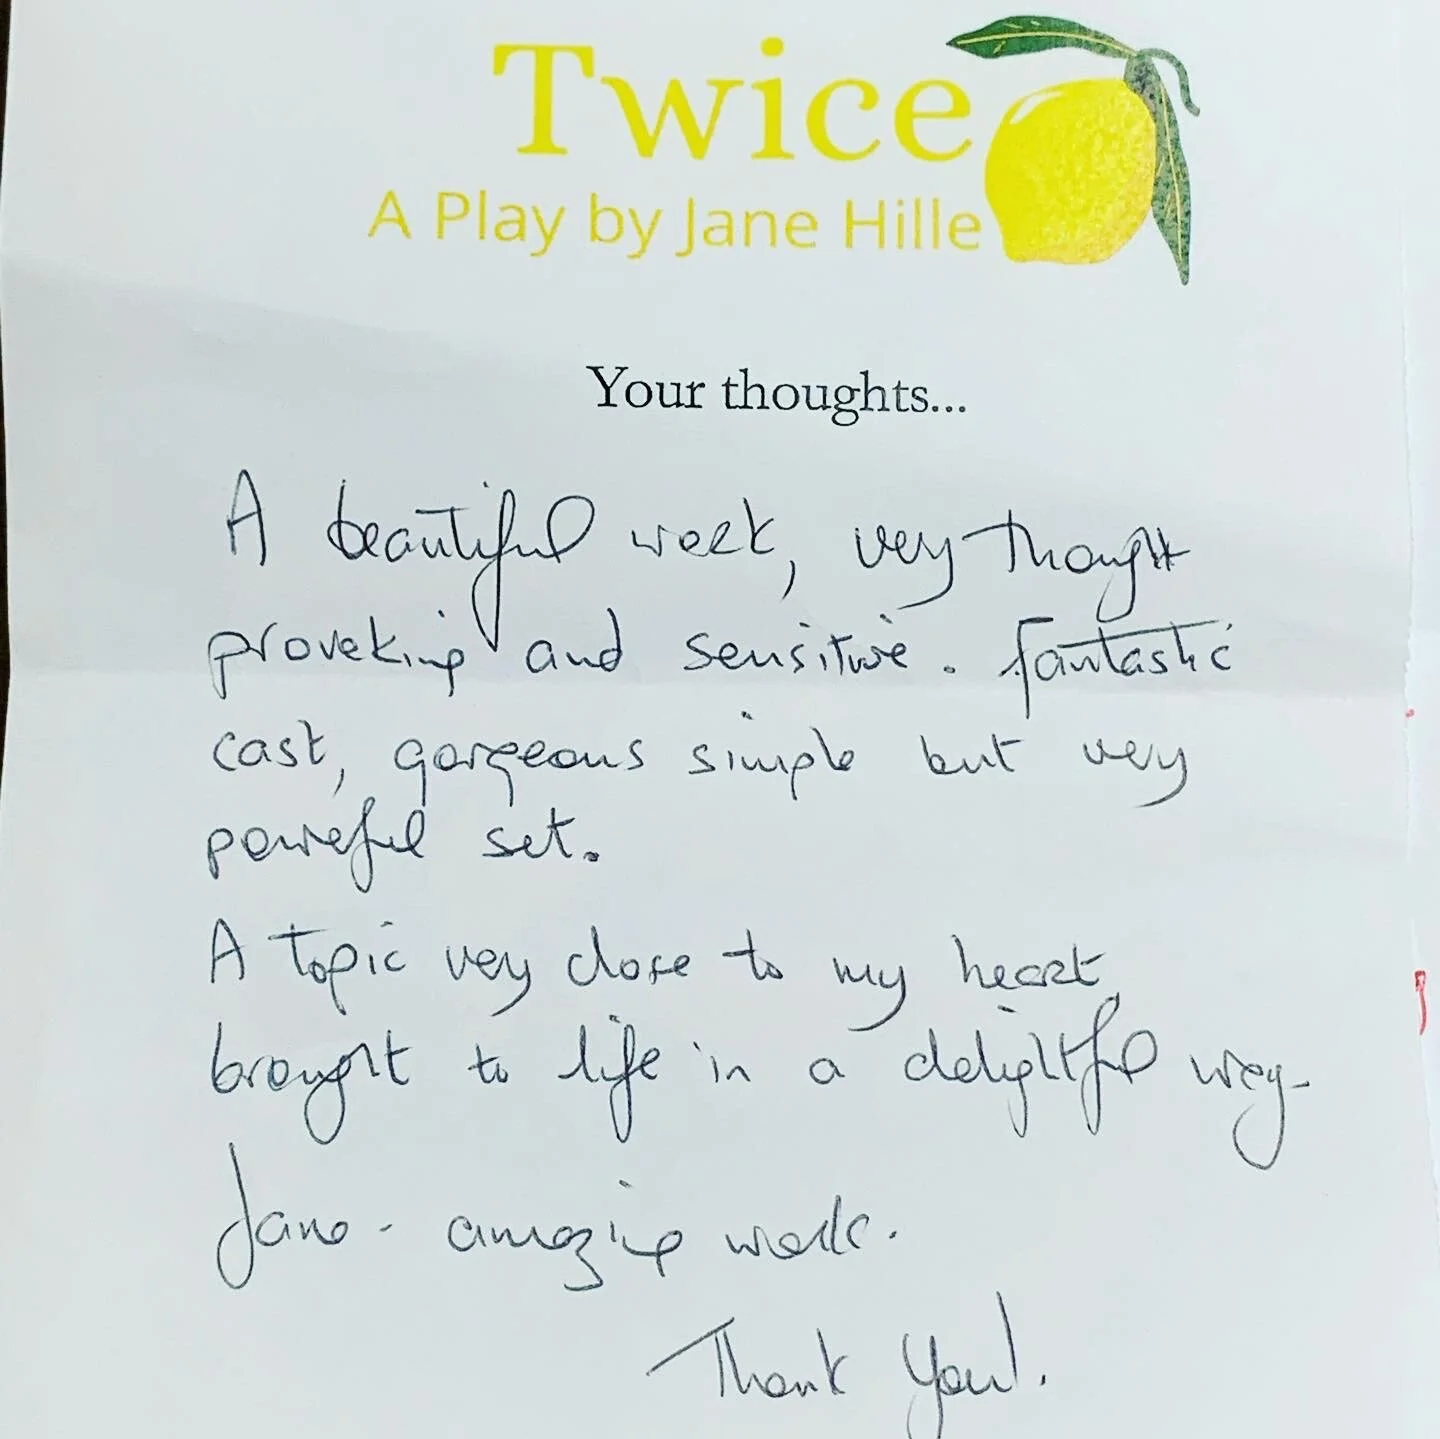 Twice
A Play by Jane Hille
Your thoughts...
A beautiful work, very thought
provoking and sensitive. Fantastic
cast, gorgeous simple but very
powerful set.
A topic very close to my heart
brought to life in a delightful way.
Jane - amazing work.
Thank you!.